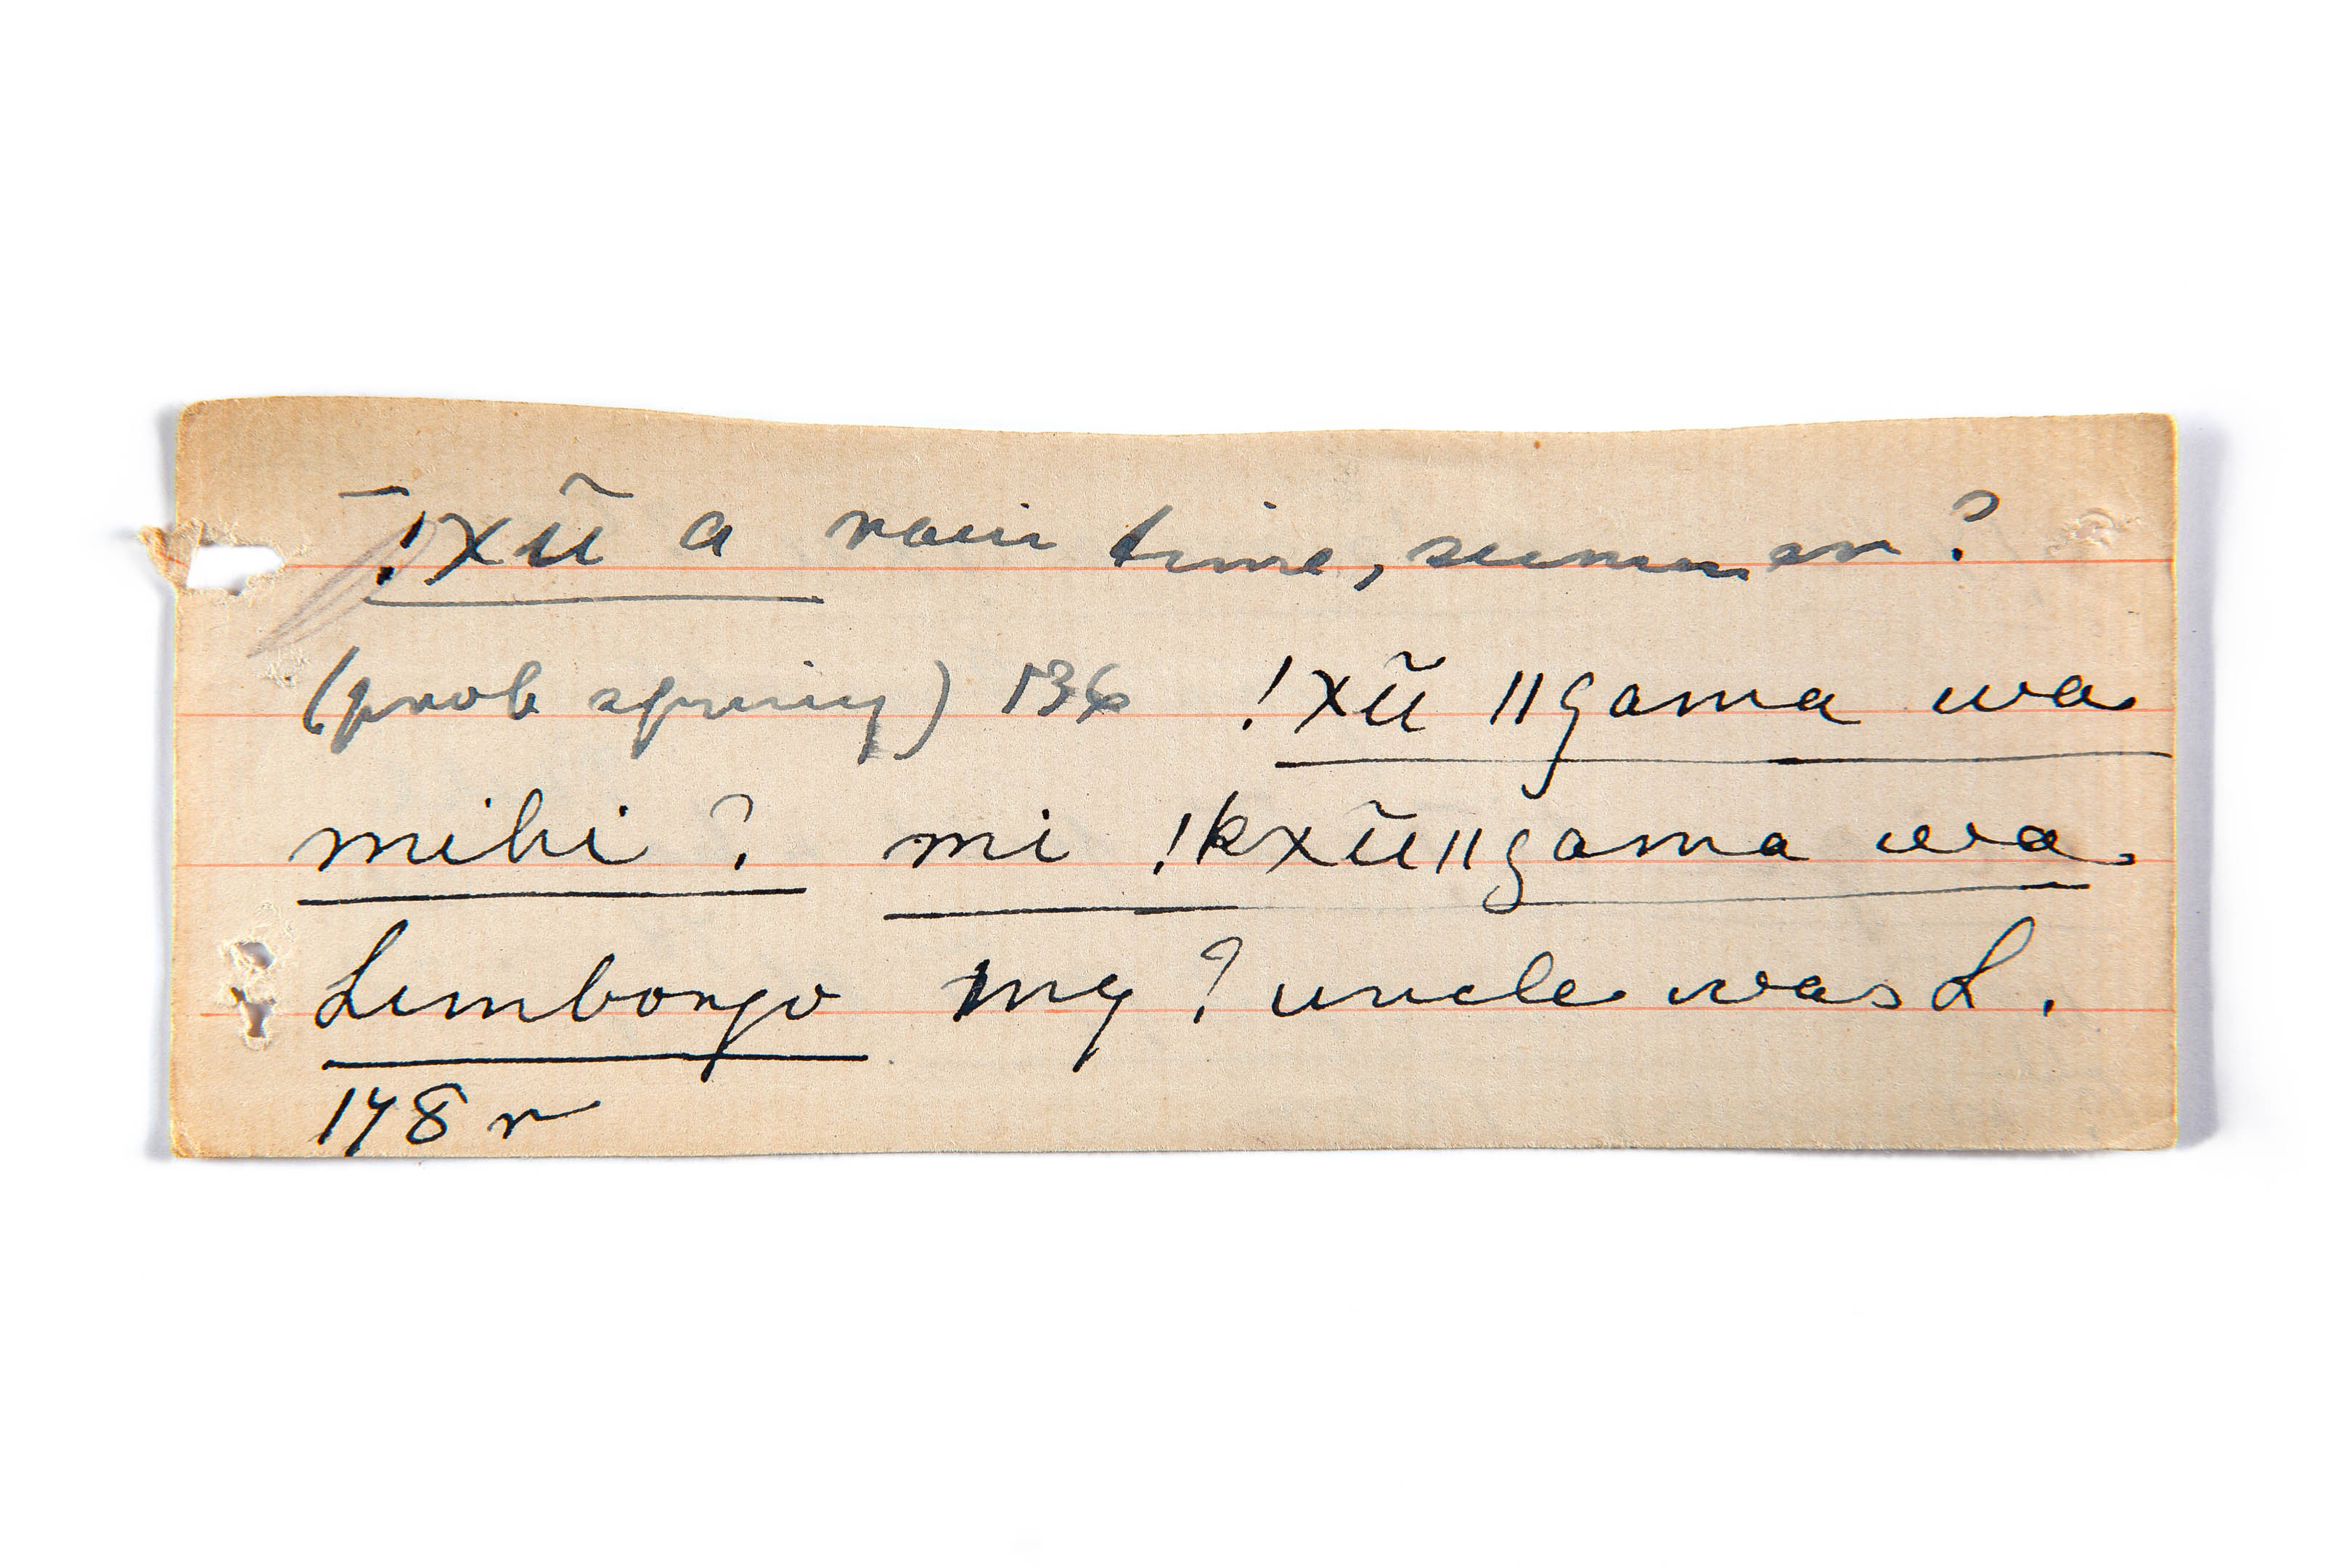 ˉ!xũ a rain time, summer?
(prob spring) 136 !xũ ||gama wa
mihi? mi !kxũ||gama wa
Limbongo my ? uncle was L.
148 r